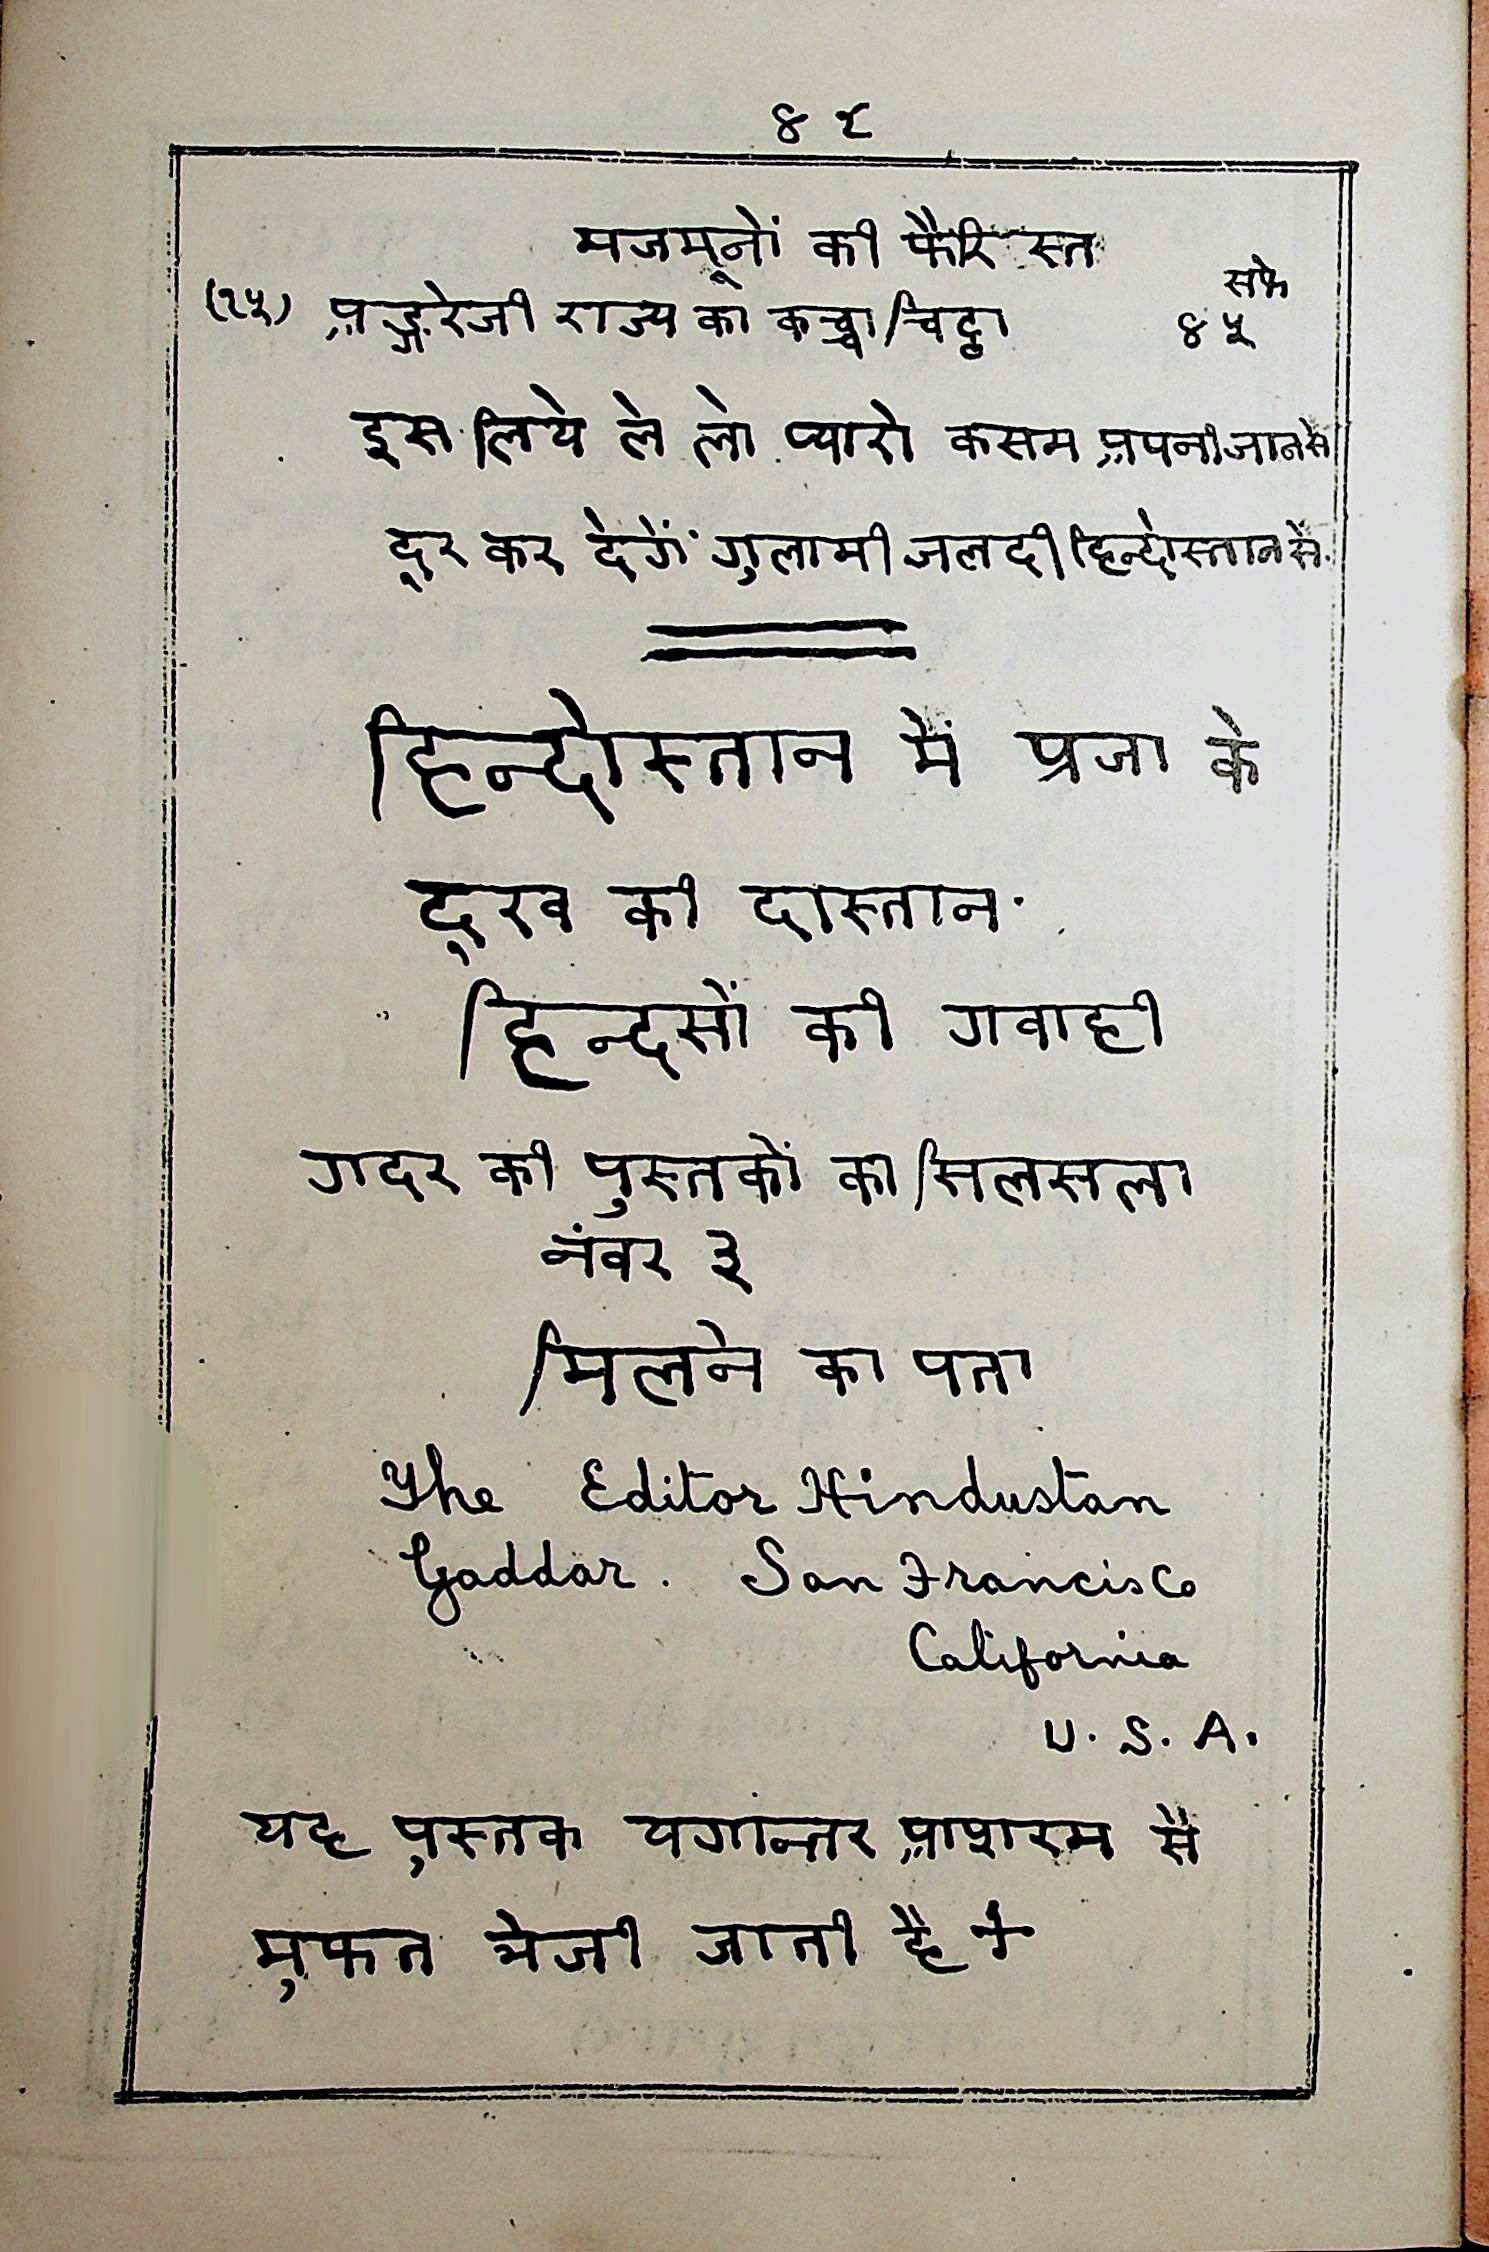 ४८
मजमूनों की फैरिस्त
सफे
(२५) अङ्गरेजी राज्य का कच्चा चिट्ठा ४५
इस लिये ले लो प्यारो कसम अपनी जान से
दूर कर देगें गुलामी जलदी हिन्दोस्तान से
हिन्दोस्तान में प्रजा के
दूख की दास्तान
हिन्दसों की गवाही
गदर की पुस्तकों का सिलसला
नंवर ३
मिलने का पता
The Editor Hindustan
Gaddar. San Francisco
California
U. S. A.
यह पुस्तक यगान्तर आशरम से
मुफत भेजी जाती है